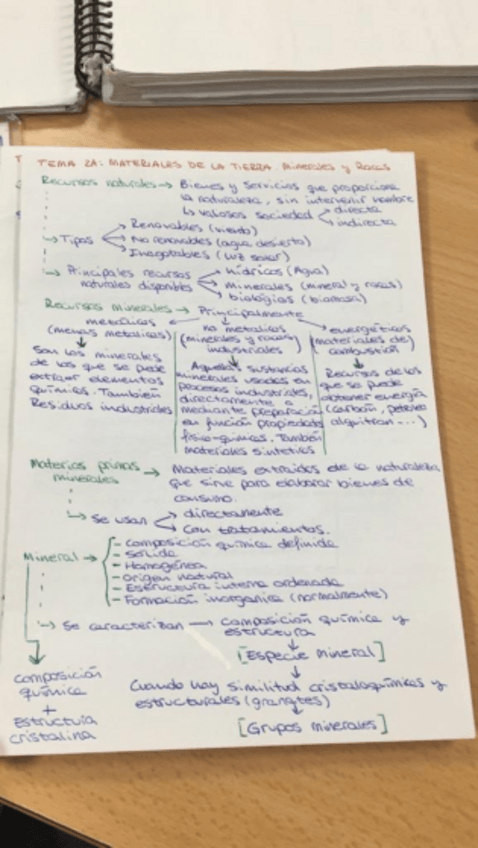 TEMA 2A: MATERIALES DE LA TIERRA Minerales y Rocas
Recursos naturales → Bienes y servicios que proporciona
la naturaleza, sin intervenir hombre
↳ valiosos sociedad < directa
indirecta
↳ Tipos < Renovables (viento)
No renovables (agua desierto)
Inagotables (luz solar)
↳ Principales recursos
naturales disponibles < hídricos (Agua)
Minerales (mineral y rocas)
biológios (biomasa)
Recursos minerales → Principalmente
metálicos
(menas metálicas)
Son los minerales
de los que se puede
extraer elementos
químicos. También
Residuos industriales
no metálicos
(minerales y rocas
industriales)
Aquellas sustancias
minerales usadas en
procesos industriales,
directamente o
mediante preparación
en función propiedades
físico-químicas. También
materiales sintéticos
energéticos
(materiales de
combustión)
Recursos de los
que se puede
obtener energía
(carbón, petróleo
alquitrán...)
Materias primas
minerales → Materiales extraídos de la naturaleza,
que sirve para elaborar bienes de
consumo.
↳ Se usan < directamente
Con tratamientos.
Mineral → - Composición química definida
- Sólida
- Homogénea
- Origen natural
- Estructura interna ordenada
- Formación inorgánica (normalmente)
↳ Se caracterizan → Composición química y
estructura
[Especie mineral]
Cuando hay similitud cristaloquímicas y
estructurales (granates)
[Grupos minerales]
Composición
química
+
Estructura
cristalina